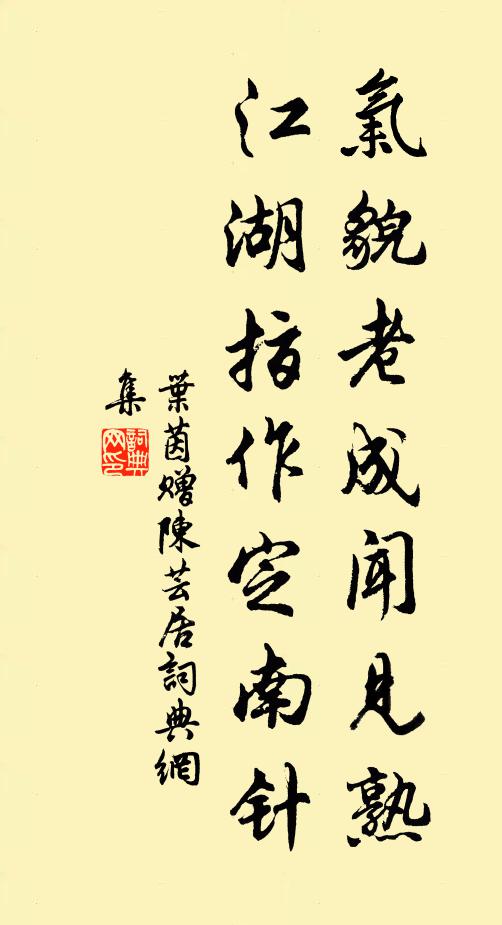 氣貌老成聞见熟
江湖指作定南针
葉茵赠陳芸居詞典網
集
詞典网印